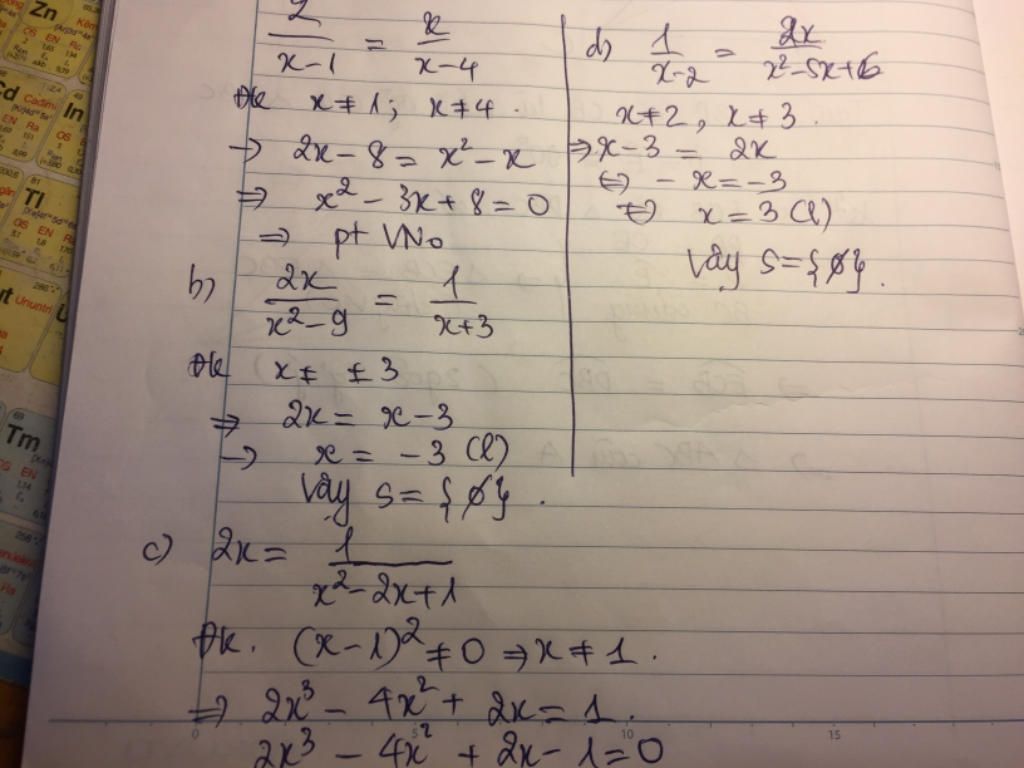 2/(x-1) = x/(x-4)
ĐK x ≠ 1; x ≠ 4.
→ 2x - 8 = x² - x
⇒ x² - 3x + 8 = 0
⇒ pt VNo
b) 2x/(x²-9) = 1/(x+3)
ĐK x ≠ ±3
⇒ 2x = x - 3
→ x = -3 (l)
Vậy S = {∅}.
c) 2x = 1/(x²-2x+1)
ĐK. (x-1)² ≠ 0 ⇒ x ≠ 1.
⇒ 2x³ - 4x² + 2x = 1.
2x³ - 4x² + 2x - 1 = 0
d) 1/(x-2) = 2x/(x²-5x+6)
x ≠ 2, x ≠ 3.
⇒ x - 3 = 2x
⇔ -x = -3
⇔ x = 3 (l)
Vậy S = {∅}.
Zn
In
Tl
Ununtri
Tm
0
5
10
15